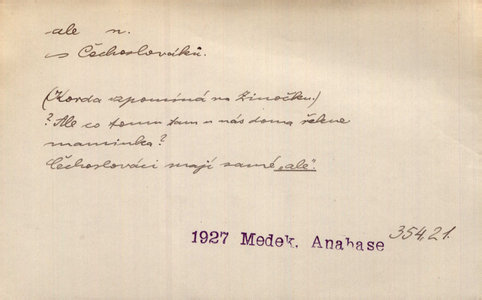 ale n.
~ Čechoslováků.
(Korda vzpomíná na Zinočku.)
? Ale co tomu tam u nás doma řekne
maminka?
Čechoslováci mají samé „ale“.
1927 Medek, Anabase 354,21.